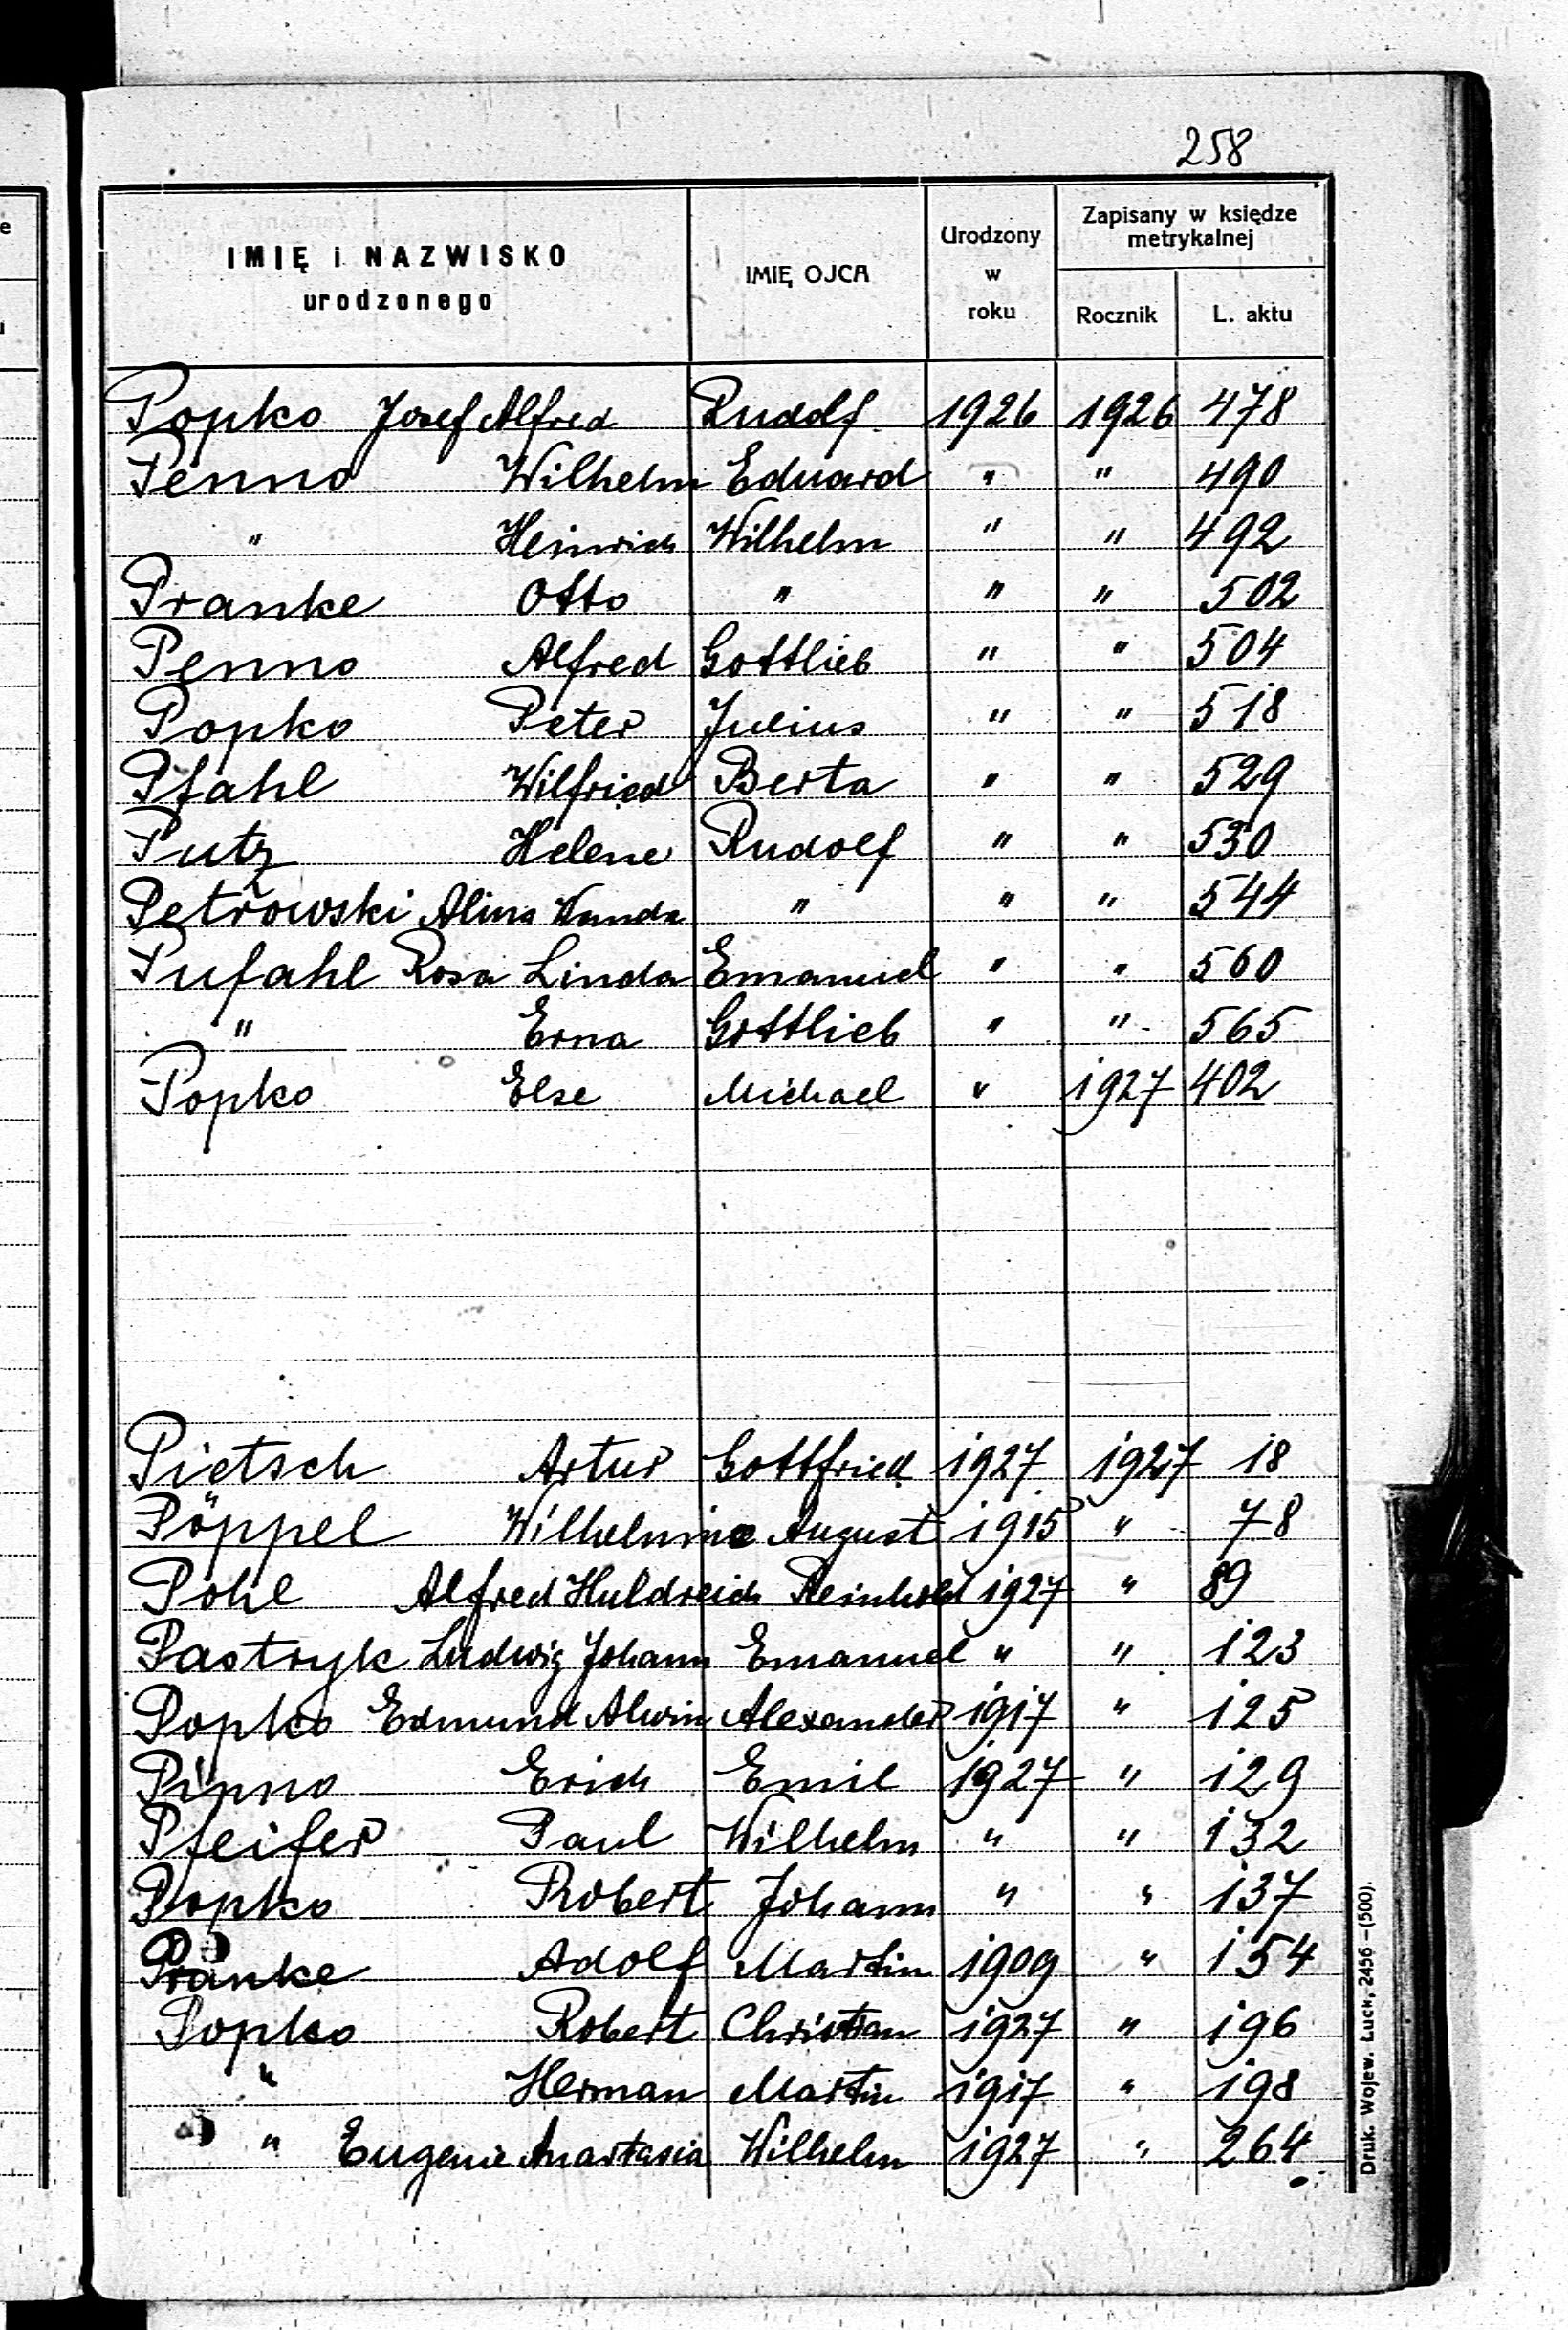 258
IMIĘ i NAZWISKO urodzonego IMIĘ OJCA Urodzony w roku Zapisany w księdze metrykalnej Rocznik L. aktu
Popko Josef Alfred Rudolf 1926 1926 478
Penno Wilhelm Eduard " " 490
" Heinrich Wilhelm " " 492
Pranke Otto " " " 502
Penno Alfred Gottlieb " " 504
Popko Peter Julius " " 518
Pfahl Wilfried Berta " " 529
Putz Helene Rudolf " " 530
Petrowski Alina Wanda " " " 544
Pufahl Rosa Linda Emanuel " " 560
" Erna Gottlieb " " 565
Popko Else Michael " 1927 402
Pietsch Artur Gottfried 1927 1927 18
Pöppel Wilhelmine August 1915 " 78
Pohl Alfred Huldreich Reinhold 1927 " 89
Pastryk Ludwig Johann Emanuel " " 123
Popko Edmund Alwin Alexander 1917 " 125
Pinno Erich Emil 1927 " 129
Pfeifer Paul Wilhelm " " 132
Popko Robert Johann " " 137
Pranke Adolf Martin 1909 " 154
Popko Robert Christian 1927 " 196
" Herman Martin 1917 " 198
" Eugenie Anastasia Wilhelm 1927 " 264
Druk. Wojew. Łuck, 2456 – (500).